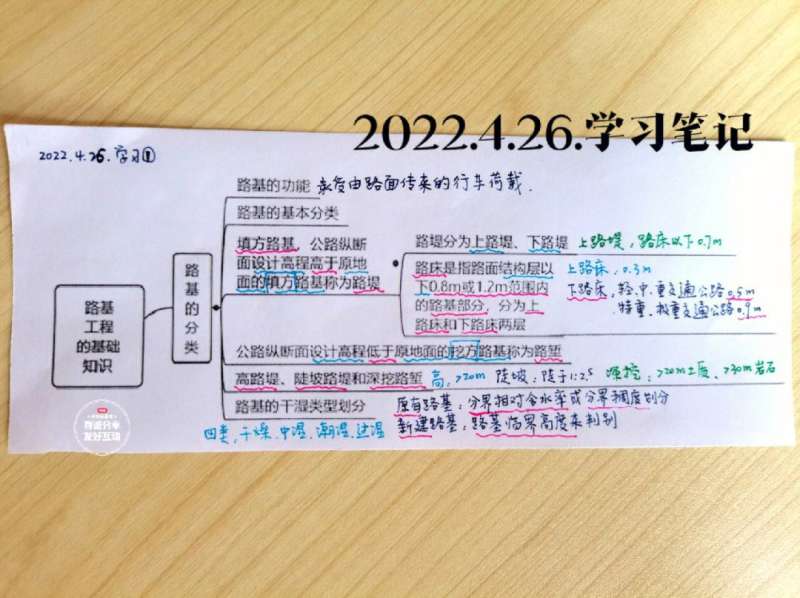 2022.4.26.学习笔记
2022.4.26.学习①
路基的功能 承受由路面传来的行车荷载.
路基的基本分类
填方路基,公路纵断
面设计高程高于原地
面的填方路基称为路堤
路堤分为上路堤、下路堤 上路堤,路床以下0.7m
路床是指路面结构层以 上路床,0.3m
下0.8m或1.2m范围内 下路床,轻.中.重交通公路0.5m
的路基部分,分为上 特重、极重交通公路0.9m
路床和下路床两层
公路纵断面设计高程低于原地面的挖方路基称为路堑
高路堤、陡坡路堤和深挖路堑 高,>20m 陡坡:陡于1:2.5 深挖:>20m土质、>30m岩石
路基的干湿类型划分 原有路基:分界相对含水率或分界稠度划分
四类,干燥.中湿.潮湿.过湿 新建路基:路基临界高度来判别
路基
工程
的基础
知识
路
基
的
分
类
有爱分享
友好互动